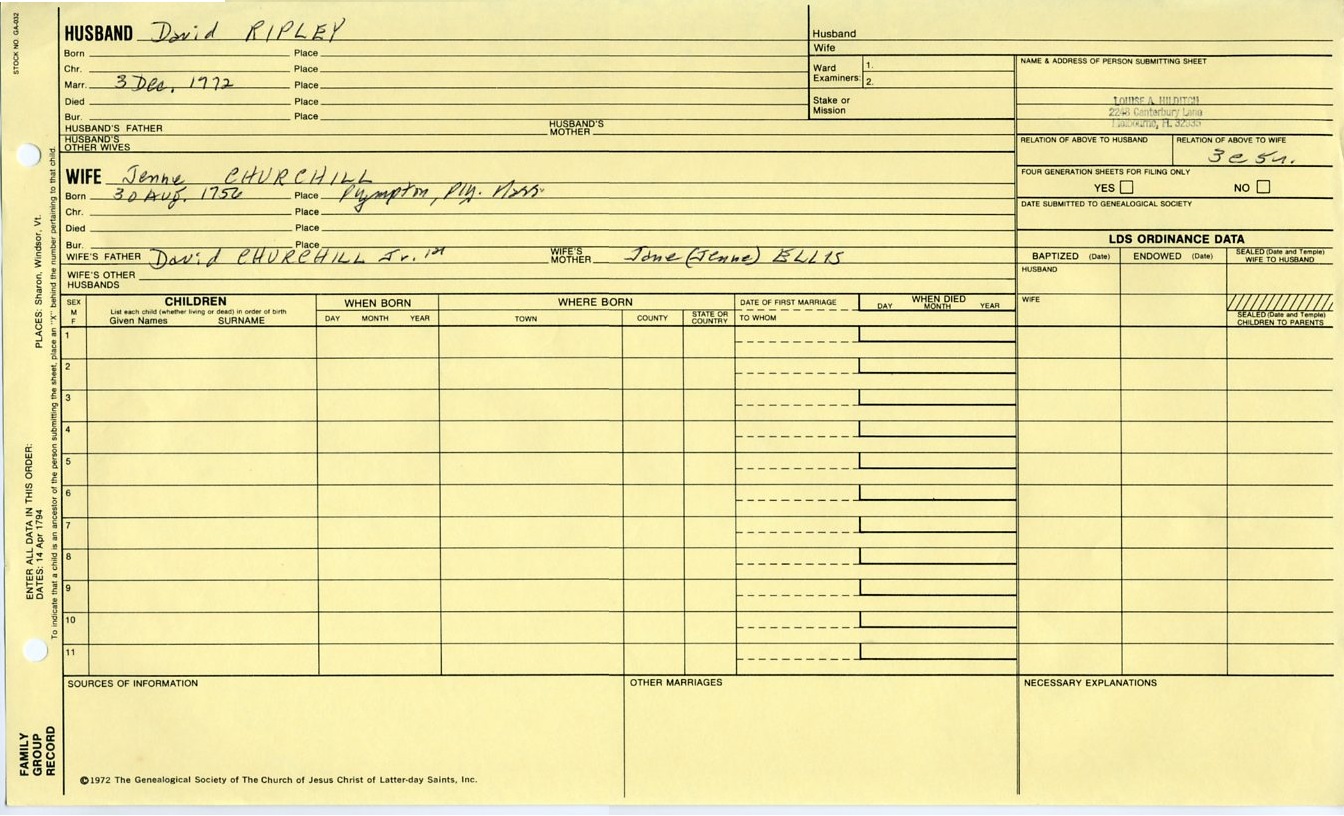 STOCK NO. GA-032
HUSBAND David RIPLEY
Born Place
Chr. Place
Marr. 3 Dec. 1772 Place
Died Place
Bur. Place
HUSBAND'S FATHER HUSBAND'S MOTHER
HUSBAND'S OTHER WIVES
Husband
Wife
Ward Examiners: 1.
2.
Stake or Mission
NAME & ADDRESS OF PERSON SUBMITTING SHEET
LOUISE A. HILDITCH
2248 Canterbury Lane
Melbourne, Fl. 32935
RELATION OF ABOVE TO HUSBAND RELATION OF ABOVE TO WIFE
3c 5r.
FOUR GENERATION SHEETS FOR FILING ONLY
YES NO
DATE SUBMITTED TO GENEALOGICAL SOCIETY
WIFE Jenne CHURCHILL
Born 30 Aug. 1756 Place Plympton, Ply. Mass.
Chr. Place
Died Place
Bur. Place
WIFE'S FATHER David CHURCHILL Jr. WIFE'S MOTHER Jane (Jenne) ELLIS
WIFE'S OTHER HUSBANDS
LDS ORDINANCE DATA
BAPTIZED (Date) ENDOWED (Date) SEALED (Date and Temple) WIFE TO HUSBAND
HUSBAND
WIFE
SEALED (Date and Temple) CHILDREN TO PARENTS
SEX M F
CHILDREN
List each child (whether living or dead) in order of birth
Given Names SURNAME
WHEN BORN
DAY MONTH YEAR
WHERE BORN
TOWN COUNTY STATE OR COUNTRY
DATE OF FIRST MARRIAGE
TO WHOM
WHEN DIED
DAY MONTH YEAR
1
2
3
4
5
6
7
8
9
10
11
SOURCES OF INFORMATION
OTHER MARRIAGES
NECESSARY EXPLANATIONS
©1972 The Genealogical Society of The Church of Jesus Christ of Latter-day Saints, Inc.
FAMILY
GROUP
RECORD
ENTER ALL DATA IN THIS ORDER:
DATES: 14 Apr 1794 PLACES: Sharon, Windsor, Vt.
To indicate that a child is an ancestor of the person submitting the sheet, place an "X" behind the number pertaining to that child.